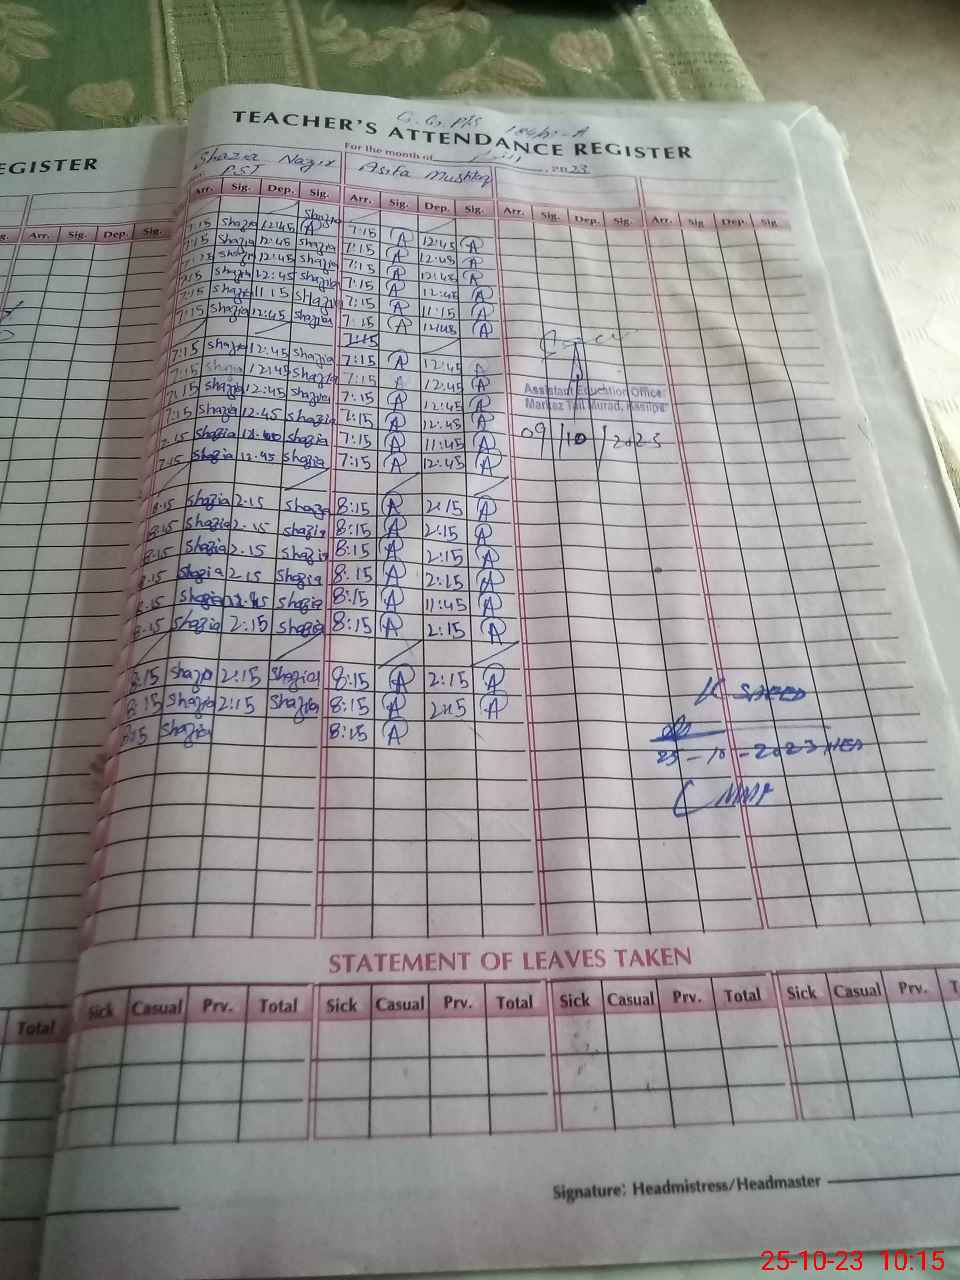 EGISTER
TEACHER'S ATTENDANCE REGISTER
For the month of 2023
Shazia Nazir Asifa Mushtaq
PST
g. Arr. Sig. Dep. Sig.
Arr. Sig. Dep. Sig. Arr. Sig. Dep. Sig. Arr. Sig. Dep. Sig. Arr. Sig. Dep. Sig.
Shazia
7:15 Shazia 12:45 A 7:15 A 12:45 A
7:15 Shazia 12:45 Shazia 7:15 A 12:45 A
7:15 Shazia 12:45 Shazia 7:15 A 12:45 A
7:15 Shazia 12:45 Shazia 7:15 A 12:45 A
7:15 Shazia 11:15 Shazia 7:15 A 11:15 A
7:15 Shazia 12:45 Shazia 7:15 A 12:45 A
7:15
7:15 Shazia 12:45 Shazia 7:15 A 12:45 A
7:15 Shazia 12:45 Shazia 7:15 A 12:45 A
7:15 Shazia 12:45 Shazia 7:15 A 12:45 A
7:15 Shazia 12:45 Shazia 7:15 A 12:45 A
7:15 Shazia Shazia 7:15 A 11:45 A
7:15 Shazia 12:45 Shazia 7:15 A 12:45 A
Assistant Education Officer
Markaz Murad,
09/10/2023
8:15 Shazia 2:15 Shazia 8:15 A 2:15 A
8:15 Shazia 2:15 Shazia 8:15 A 2:15 A
8:15 Shazia 2:15 Shazia 8:15 A 2:15 A
8:15 Shazia 2:15 Shazia 8:15 A 2:15 A
8:15 Shazia Shazia 8:15 A 11:45 A
8:15 Shazia 2:15 Shazia 8:15 A 2:15 A
8:15 Shazia 2:15 Shazia 8:15 A 2:15 A
8:15 Shazia 2:15 Shazia 8:15 A 2:15 A
8:15 Shazia 8:15 A
25-10-2023
STATEMENT OF LEAVES TAKEN
Total Sick Casual Prv. Total Sick Casual Prv. Total Sick Casual Prv. Total Sick Casual Prv. T
Signature: Headmistress/Headmaster
25-10-23 10:15